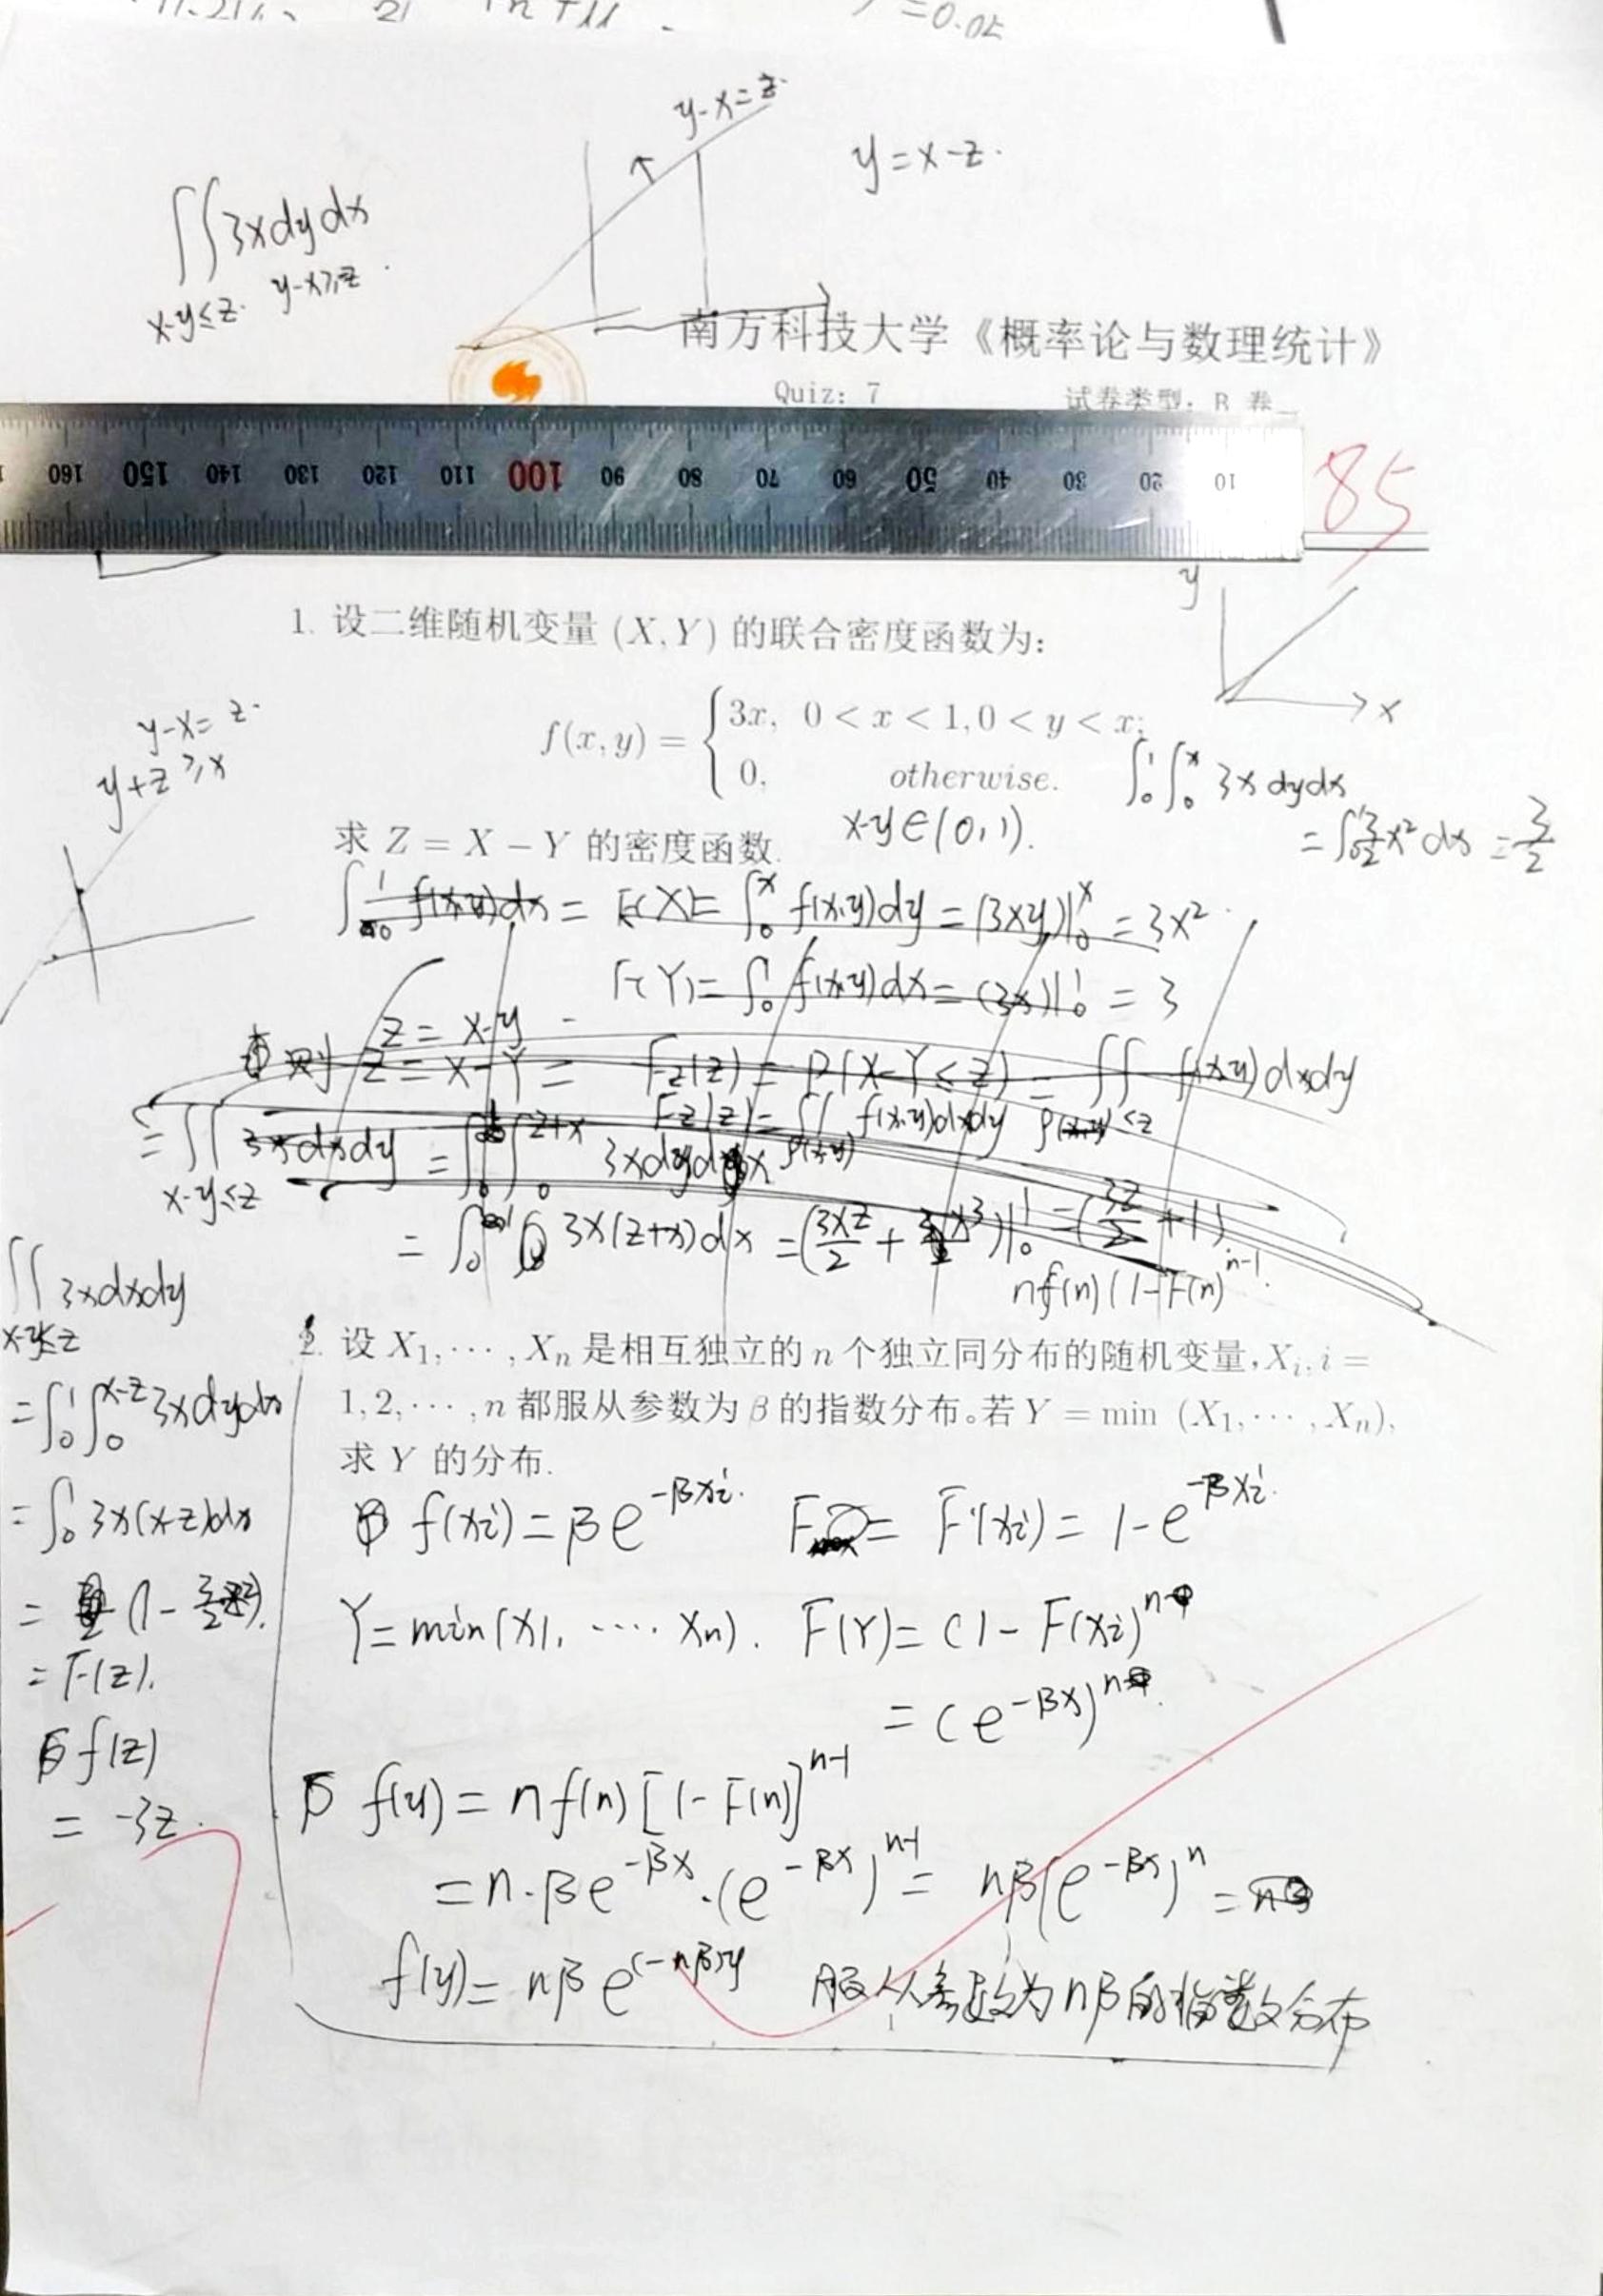 =0.05
y-x=z.
y=x-z.
∬3xdydx
x-y≤z. y-x≥z.
南方科技大学《概率论与数理统计》
Quiz: 7 试卷类型: B 卷
160 150 140 130 120 110 100 90 80 70 60 50 40 30 20 10
85
y
x
1. 设二维随机变量 (X,Y) 的联合密度函数为:
f(x,y) = { 3x, 0 < x < 1, 0 < y < x;
0, otherwise.
y-x= z.
y+z ≥x
∫₀¹∫₀ˣ 3x dydx
= ∫₀¹ x² dx = 3/2
求 Z = X − Y 的密度函数.
x-y∈(0,1).
f(x,y)dx = F(X)= ∫₀ˣ f(x,y)dy = (3xy)|₀ˣ = 3x²
F(Y)= ∫₀¹ f(x,y)dx = (3x)|₀¹ = 3
z = x-y
则 Z = X-Y = F_Z(z) = P(X-Y≤z) = ∬ f(x,y)dxdy
F_Z(z)= ∬ f(x,y)dxdy
= ∬ 3xdxdy = ∫∫₀^{z+x} 3xdydx
x-y≤z
= ∫₀¹ 3x(z+x)dx = (3xz/2 + x³)|₀¹ = (3z/2 + 1)
nf(n)(1-F(n)^{n-1}.
∬3xdxdy
x-y≤z
=∫₀¹∫₀^{x-z}3xdydx
=∫₀¹3x(x-z)dx
= (1-
= F(z).
f(z)
= -3z.
2. 设 X₁,⋯,Xₙ 是相互独立的 n 个独立同分布的随机变量,Xᵢ, i =
1,2,⋯,n 都服从参数为 β 的指数分布。若 Y = min (X₁,⋯,Xₙ),
求 Y 的分布.
f(xi) = βe^{-βxi}. F(xi) = 1-e^{-βxi}.
Y=min(X1,⋯⋯Xn). F(Y)=(1-F(Xi)^{n}
=(e^{-βx})^{n}
f(y)= nf(n)[1-F(n)]^{n-1}
=n·βe^{-βx}·(e^{-βx})^{n-1}= nβ(e^{-βx})^n =
f(y)= nβe^{(-nβ)y} 服从参数为nβ的指数分布
1